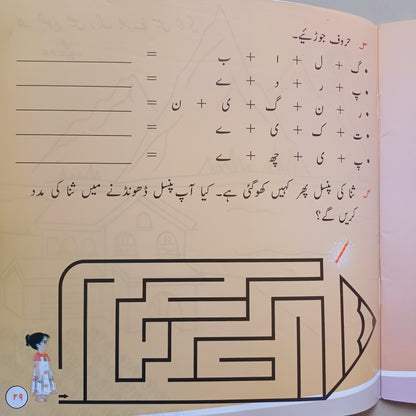 ۳۔ حروف جوڑئیے۔
گ + ل + ا + ب =
پ + ر + د + ے =
ر + ن + گ + ی + ن =
ت + ک + ی + ے =
پ + ی + چھ + ے =
۴۔ ثنا کی پنسل پھر کہیں کھو گئی ہے۔ کیا آپ پنسل ڈھونڈنے میں ثنا کی مدد
کریں گے؟
۲۹